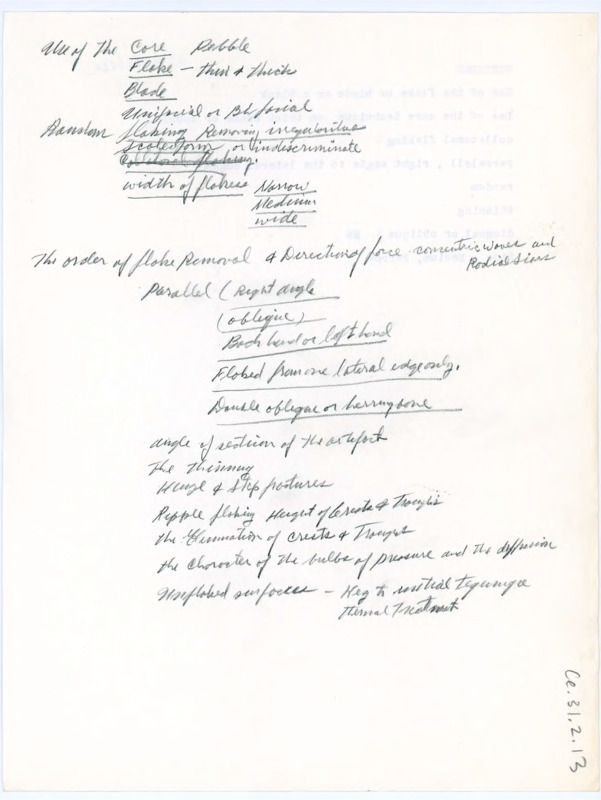 Use of the Core Pebble
Flake - thin & thick
Blade
Unifacial or Bifacial
Random flaking Removing irregularities
scaleform, or indiscriminate
Collateral flaking.
width of flakes Narrow
Medium
wide
The order of flake Removal & Direction of force - concentric waves and
Radial scars
Parallel (Right angle
(oblique)
Back hand or left hand
Flaked from one lateral edge only.
Double oblique or herringbone
angle of section of the artifact
The thinning
Hinge & Step fractures
Ripple flaking Height of Crests & Troughs
the Elimination of crests & Troughs
the Character of the bulbs of pressure and the diffusion
Unflaked surfaces - Key to initial technique
Thermal Treatment
Ce.31.2.13